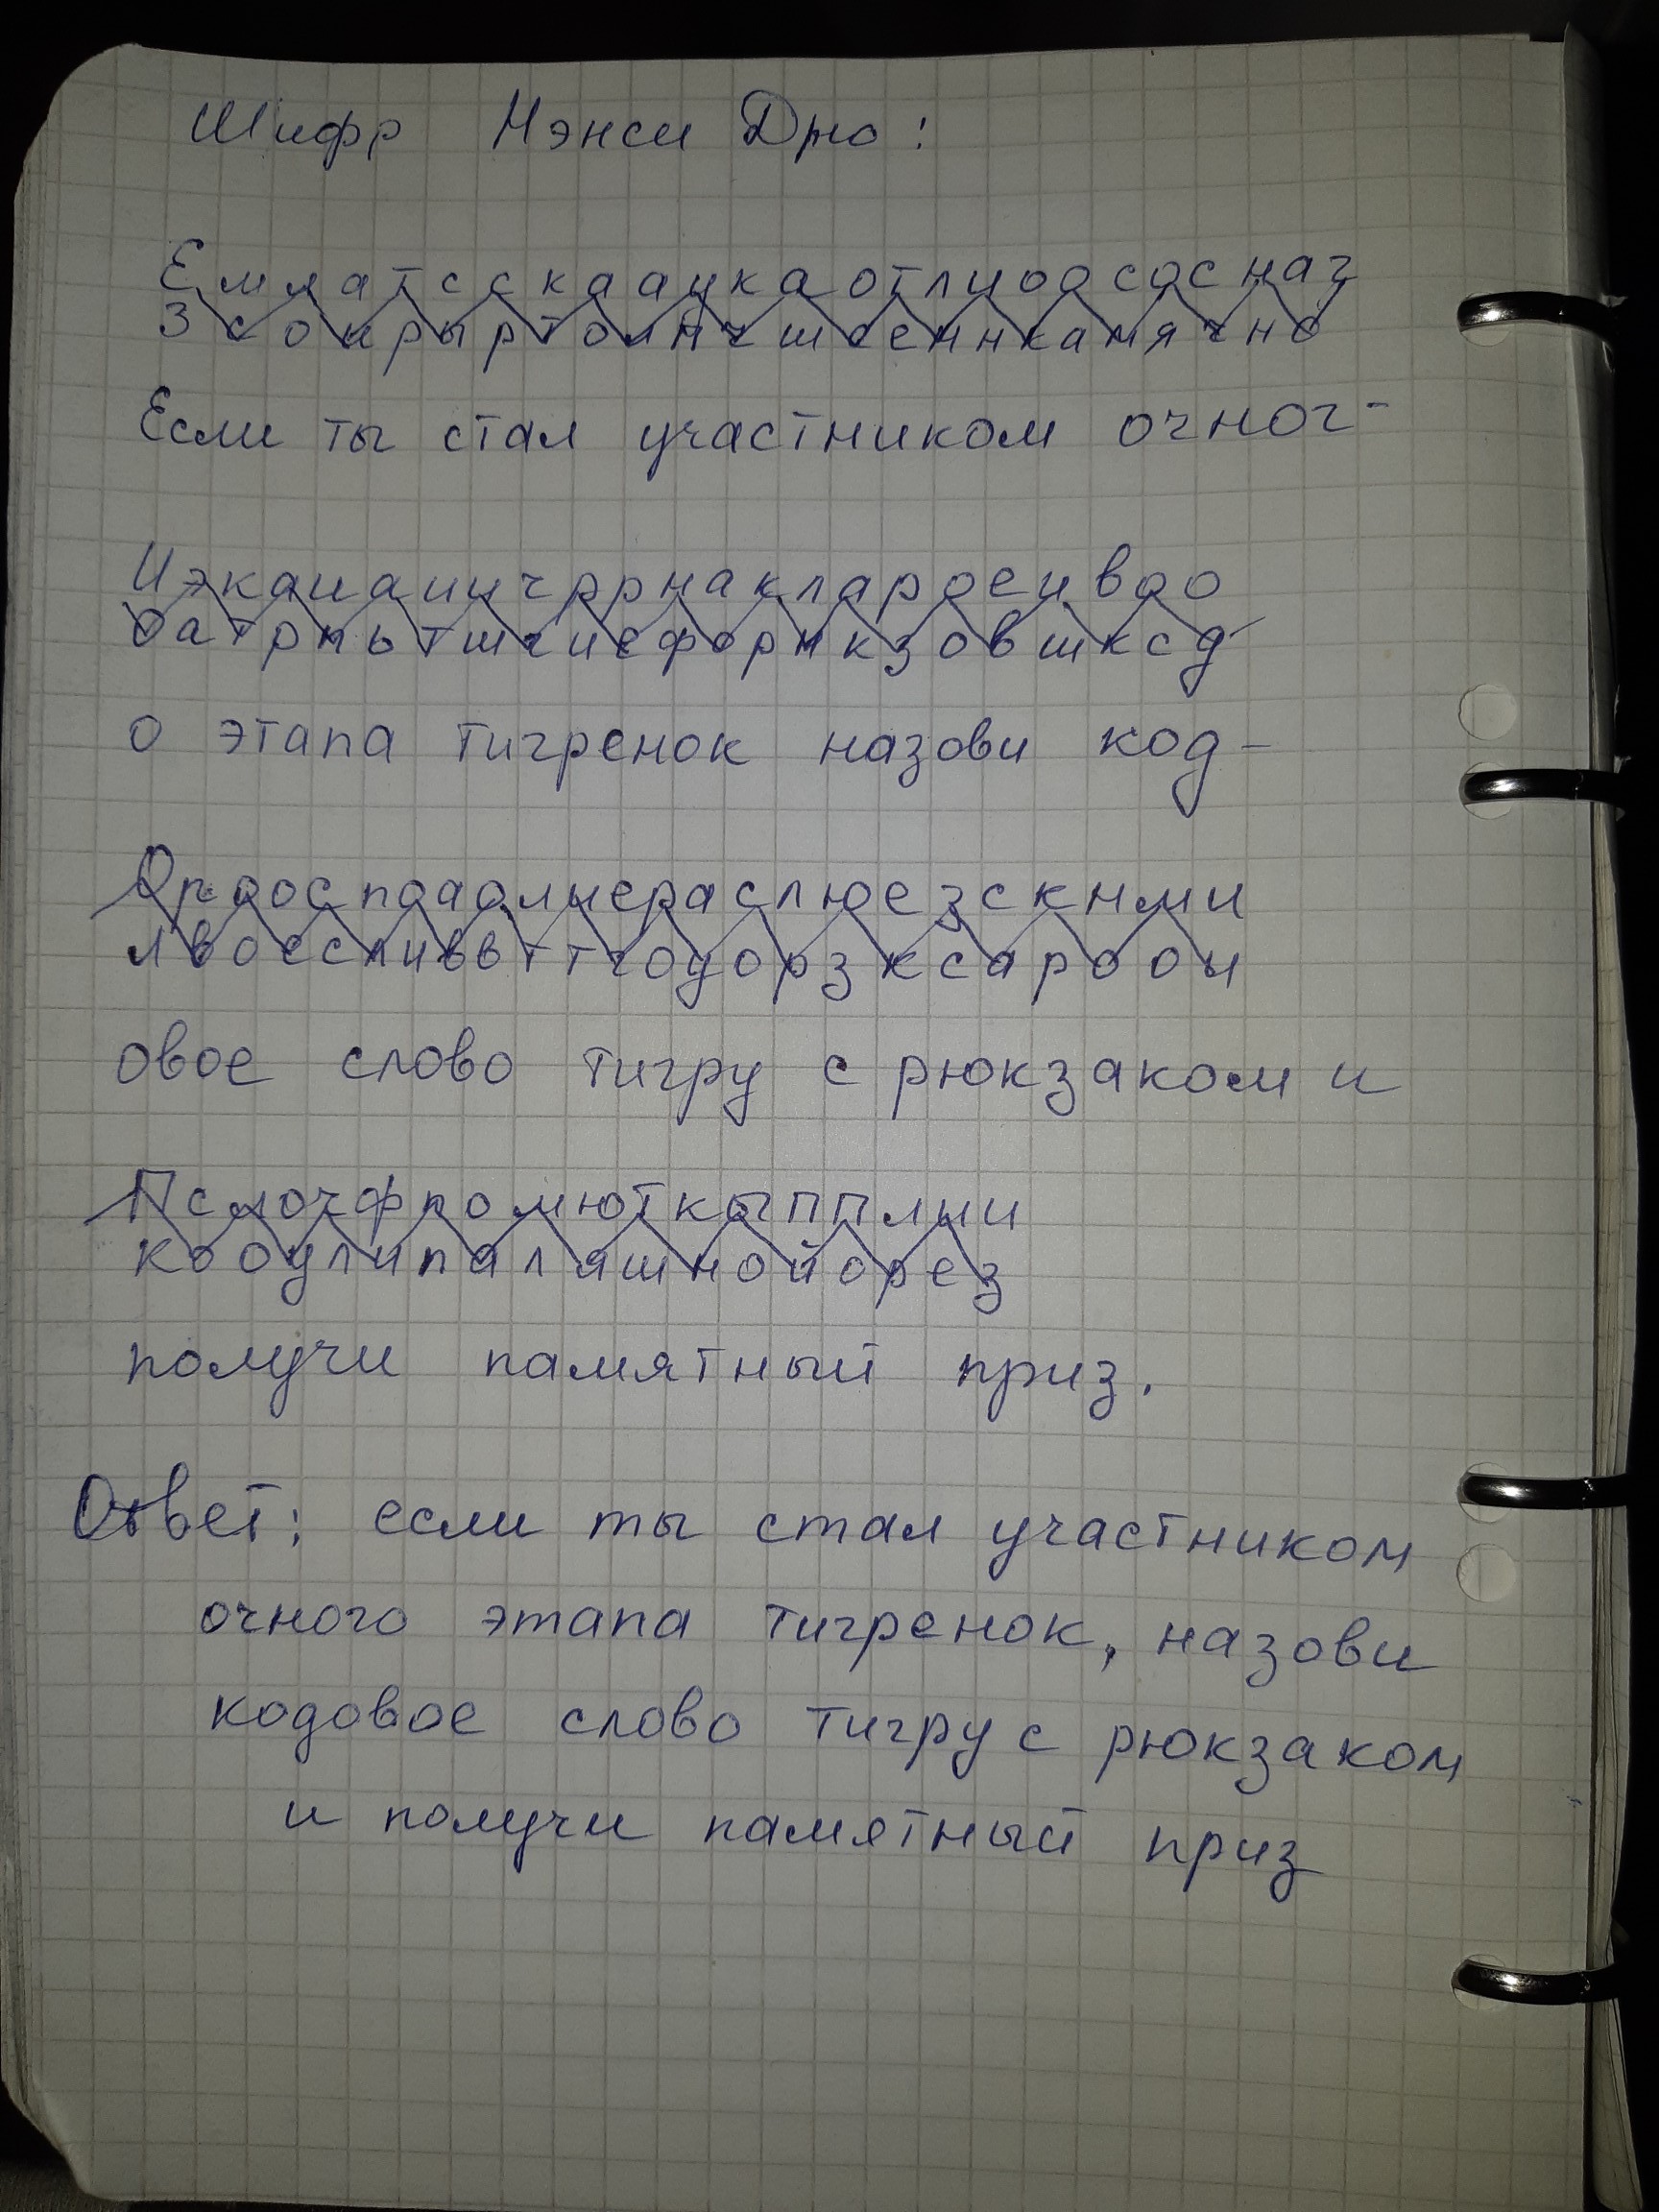 Шифр Нэнси Дрю:
Емлатсскааукаотлиоососнаг
Зсоирыртолпчшсеннкамячно
Если ты стал участником очног-
Иэкаиаиичррнаклароеивоо
оатрпьтшгиефорнкзовшксд
о этапа тигренок назови код-
Орооспоаолиераслюезскнми
лвоессливвттгоуорзксарооы
овое слово тигру с рюкзаком и
Пслочфпомюткыпплии
кооулипаляшнойорез
получи памятный приз.
Ответ: если ты стал участником
очного этапа тигренок, назови
кодовое слово тигру с рюкзаком
и получи памятный приз